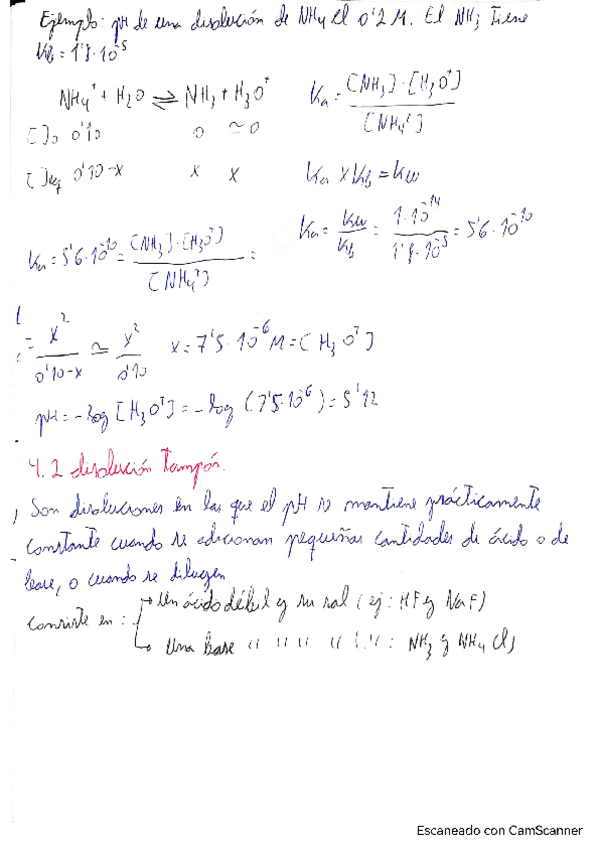 Ejemplo: pH de una disolución de NH4 Cl 0'2 M. El NH3 tiene
Kb = 1'8·10^-5
NH4^+ + H2O ⇌ NH3 + H3O^+ Ka = [NH3]·[H3O^+] / [NH4^+]
[ ]o 0'10 0 ≃0
[ ]eq 0'10-x x x Ka x Kb = Kw
Ka = Kw/Kb = 1·10^-14 / 1'8·10^-5 = 5'6·10^-10
Ka = 5'6·10^-10 = [NH3]·[H3O^+] / [NH4^+] =
= x^2 / 0'10-x ≃ x^2 / 0'10 x = 7'5·10^-6 M = [H3O^+]
pH = -log [H3O^+] = -log (7'5·10^-6) = 5'12
4.2 disolución Tampón.
Son disoluciones en las que el pH se mantiene prácticamente
constante cuando se adicionan pequeñas cantidades de ácido o de
base, o cuando se diluyen
Consiste en: → Un ácido débil y su sal (ej: HF y NaF)
→ Una base " " " " " : NH3 y NH4 Cl)
Escaneado con CamScanner